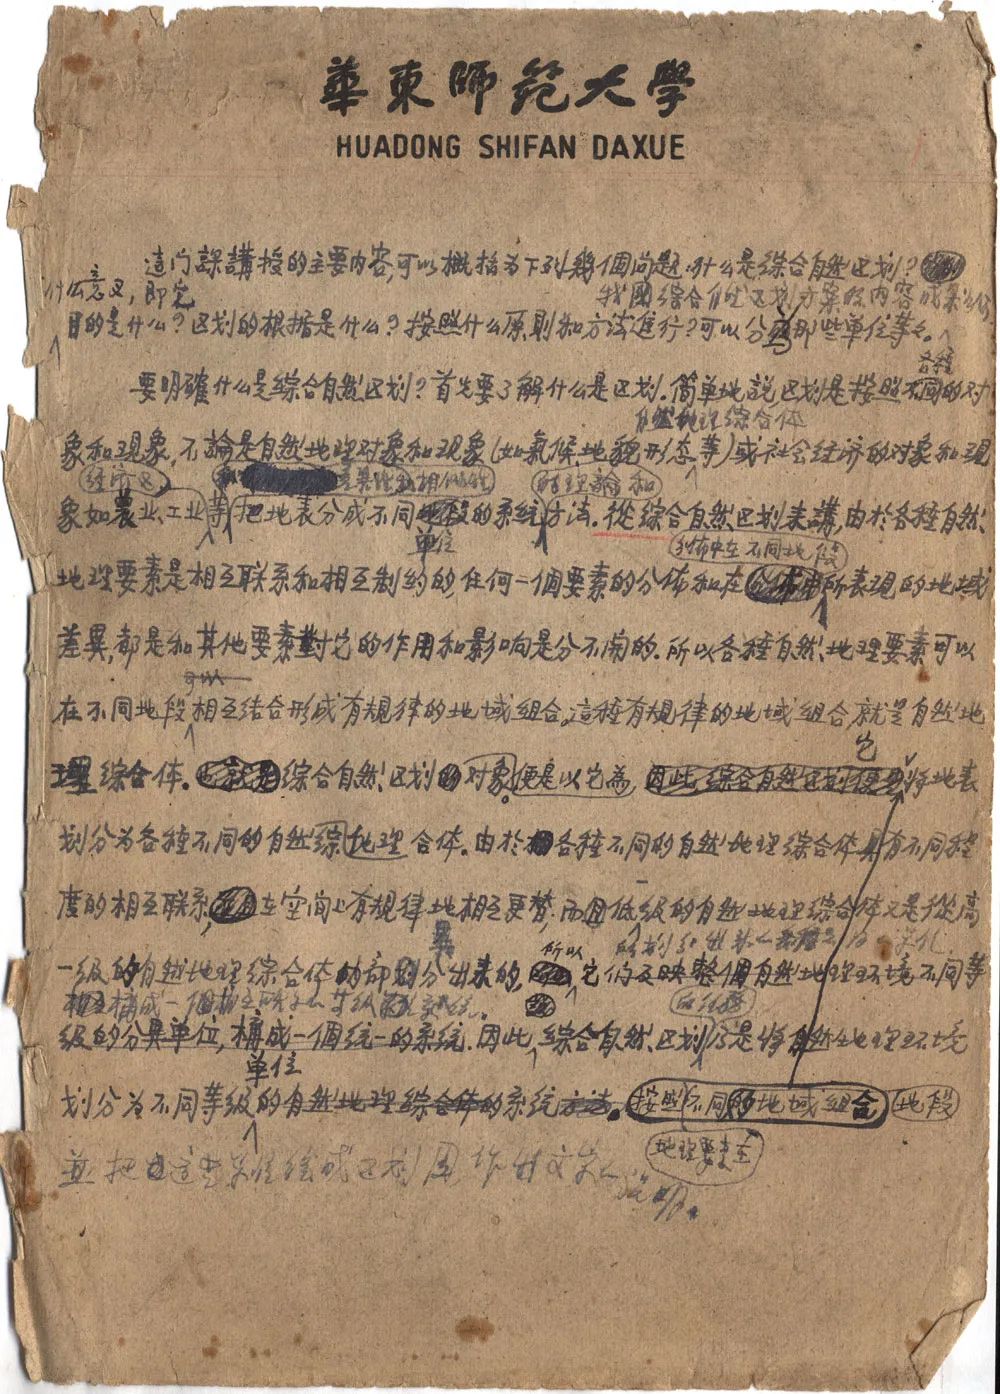 華東師范大學
HUADONG SHIFAN DAXUE
這门課講授的主要内容,可以概括为下列幾個问题.什么是綜合自然区划?
什么意义,即它
我國綜合自然区划方案的内容成果
目的是什么?区划的根据是什么?按照什么原則和方法進行?可以分为那些单位等等.
各種
要明確什么是綜合自然区划?首先要了解什么是区划.简单地說区划是按照不同的对
自然地理綜合体
象和現象,不論是自然地理对象和現象(如氣候、地貌形态等)或社会经济的对象和現
经济区 差異性和相似性 的理論和
象如農业、工业等把地表分成不同地段的系統方法.從綜合自然区划来講,由於各種自然
单位
分佈中在不同地段
地理要素是相互联系和相互制約的,任何一個要素的分佈和在分佈中所表現的地域
差異,都是和其他要素對它的作用和影响是分不開的.所以各種自然地理要素可以
可以
在不同地段相互结合形成有規律的地域組合。這種有規律的地域組合就是自然地
它
理綜合体。也就是綜合自然区划的对象。便是以它為 因此綜合自然区划便是将地表
划分为各種不同的自然綜地理合体.由於各種不同的自然地理綜合体具有不同程
度的相互联系,在空间上有規律地相互更替,而且低級的自然地理綜合体又是從高
所以
一級的自然地理綜合体的部划分出来的,它们反映整個自然地理环境不同等
異
構成一個
級的分異单位,構成一個统一的系統.因此,綜合自然区划乃是将自然地理环境
单位
划分为不同等級的自然地理綜合体的系統方法。按照不同的地域組合 地段
地理要素
並把这些单位绘成区划图作出文字 說明.